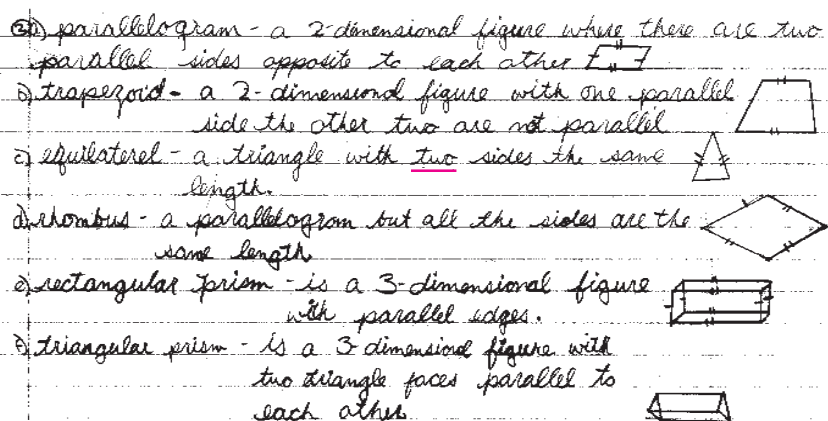 3a) parallelogram - a 2-dimensional figure where there are two
parallel sides opposite to each other
b) trapezoid - a 2-dimensional figure with one parallel
side the other two are not parallel
c) equilaterel - a triangle with two sides the same
length.
d) rhombus - a parallelogram but all the sides are the
same length
e) rectangular prism - is a 3-dimensional figure
with parallel edges.
f) triangular prism - is a 3-dimensional figure with
two triangle faces parallel to
each other